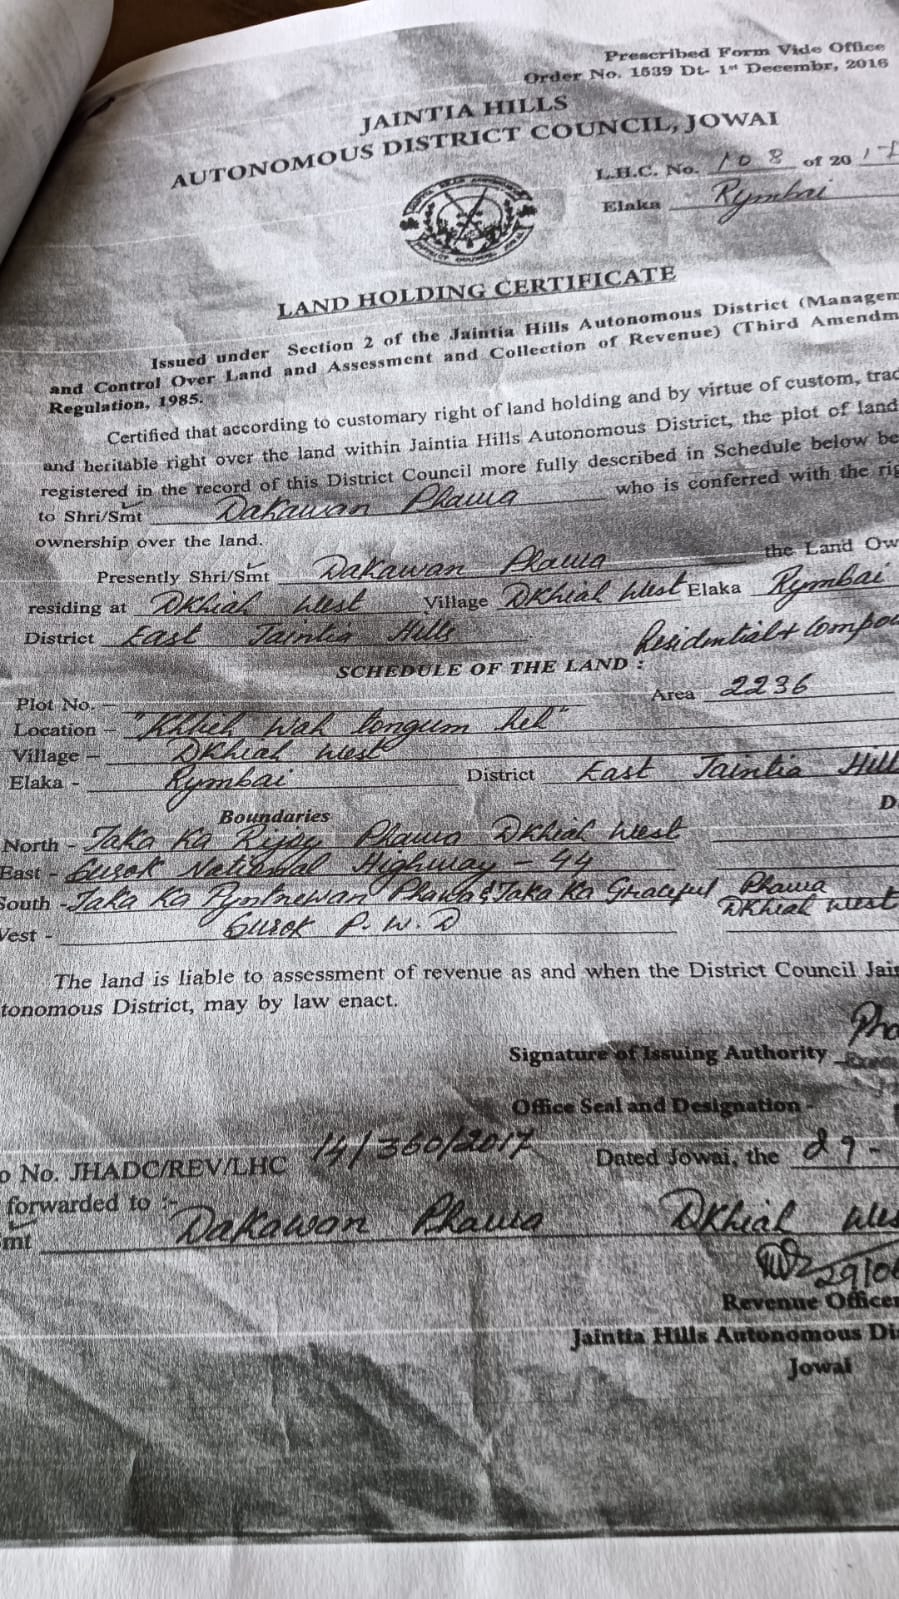 Prescribed Form Vide Office
Order No. 1539 Dt- 1st Decembr, 2016
JAINTIA HILLS
AUTONOMOUS DISTRICT COUNCIL, JOWAI
L.H.C. No. 108 of 2017
Elaka Rymbai
LAND HOLDING CERTIFICATE
Issued under Section 2 of the Jaintia Hills Autonomous District (Managem
and Control Over Land and Assessment and Collection of Revenue) (Third Amendm
Regulation, 1985.
Certified that according to customary right of land holding and by virtue of custom, trad
and heritable right over the land within Jaintia Hills Autonomous District, the plot of land
registered in the record of this District Council more fully described in Schedule below be
to Shri/Smt Dakawan Phawa who is conferred with the rig
ownership over the land.
Presently Shri/Smt Dakawan Phawa the Land Ow
residing at Dkhiah West Village Dkhiah West Elaka Rymbai
District East Jaintia Hills
Residential + Compou
SCHEDULE OF THE LAND :
Plot No. - Area 2236
Location - "Khlieh Wah
Village - Dkhiah West
Elaka - Rymbai District East Jaintia Hill
Boundaries D
North - Jaka Ka Phawa Dkhiah West
East - Surok National Highway - 44
South - Jaka Ka Phawa & Jaka Ka Grateful Phawa
Dkhiah West
Vest - Surok P.W.D
The land is liable to assessment of revenue as and when the District Council Jain
tonomous District, may by law enact.
Signature of Issuing Authority
Office Seal and Designation -
o No. JHADC/REV/LHC 14/360/2017 Dated Jowai, the 29-
forwarded to :-
mt Dakawan Phawa Dkhiah Wes
29/06
Revenue Officer
Jaintia Hills Autonomous Dis
Jowai